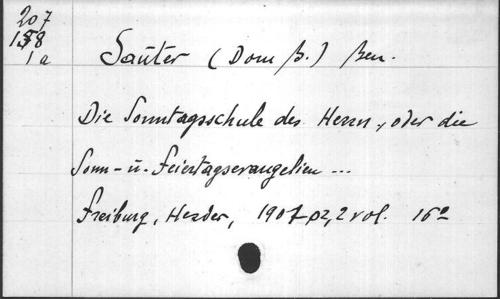 207
158
1a
Sauter (Dom B.) Ben.
Die Sonntagsschule des Herrn, oder die
Sonn- u. Feiertagsevangelien ...
Freiburg, Herder, 1907, 2 vol. 16º